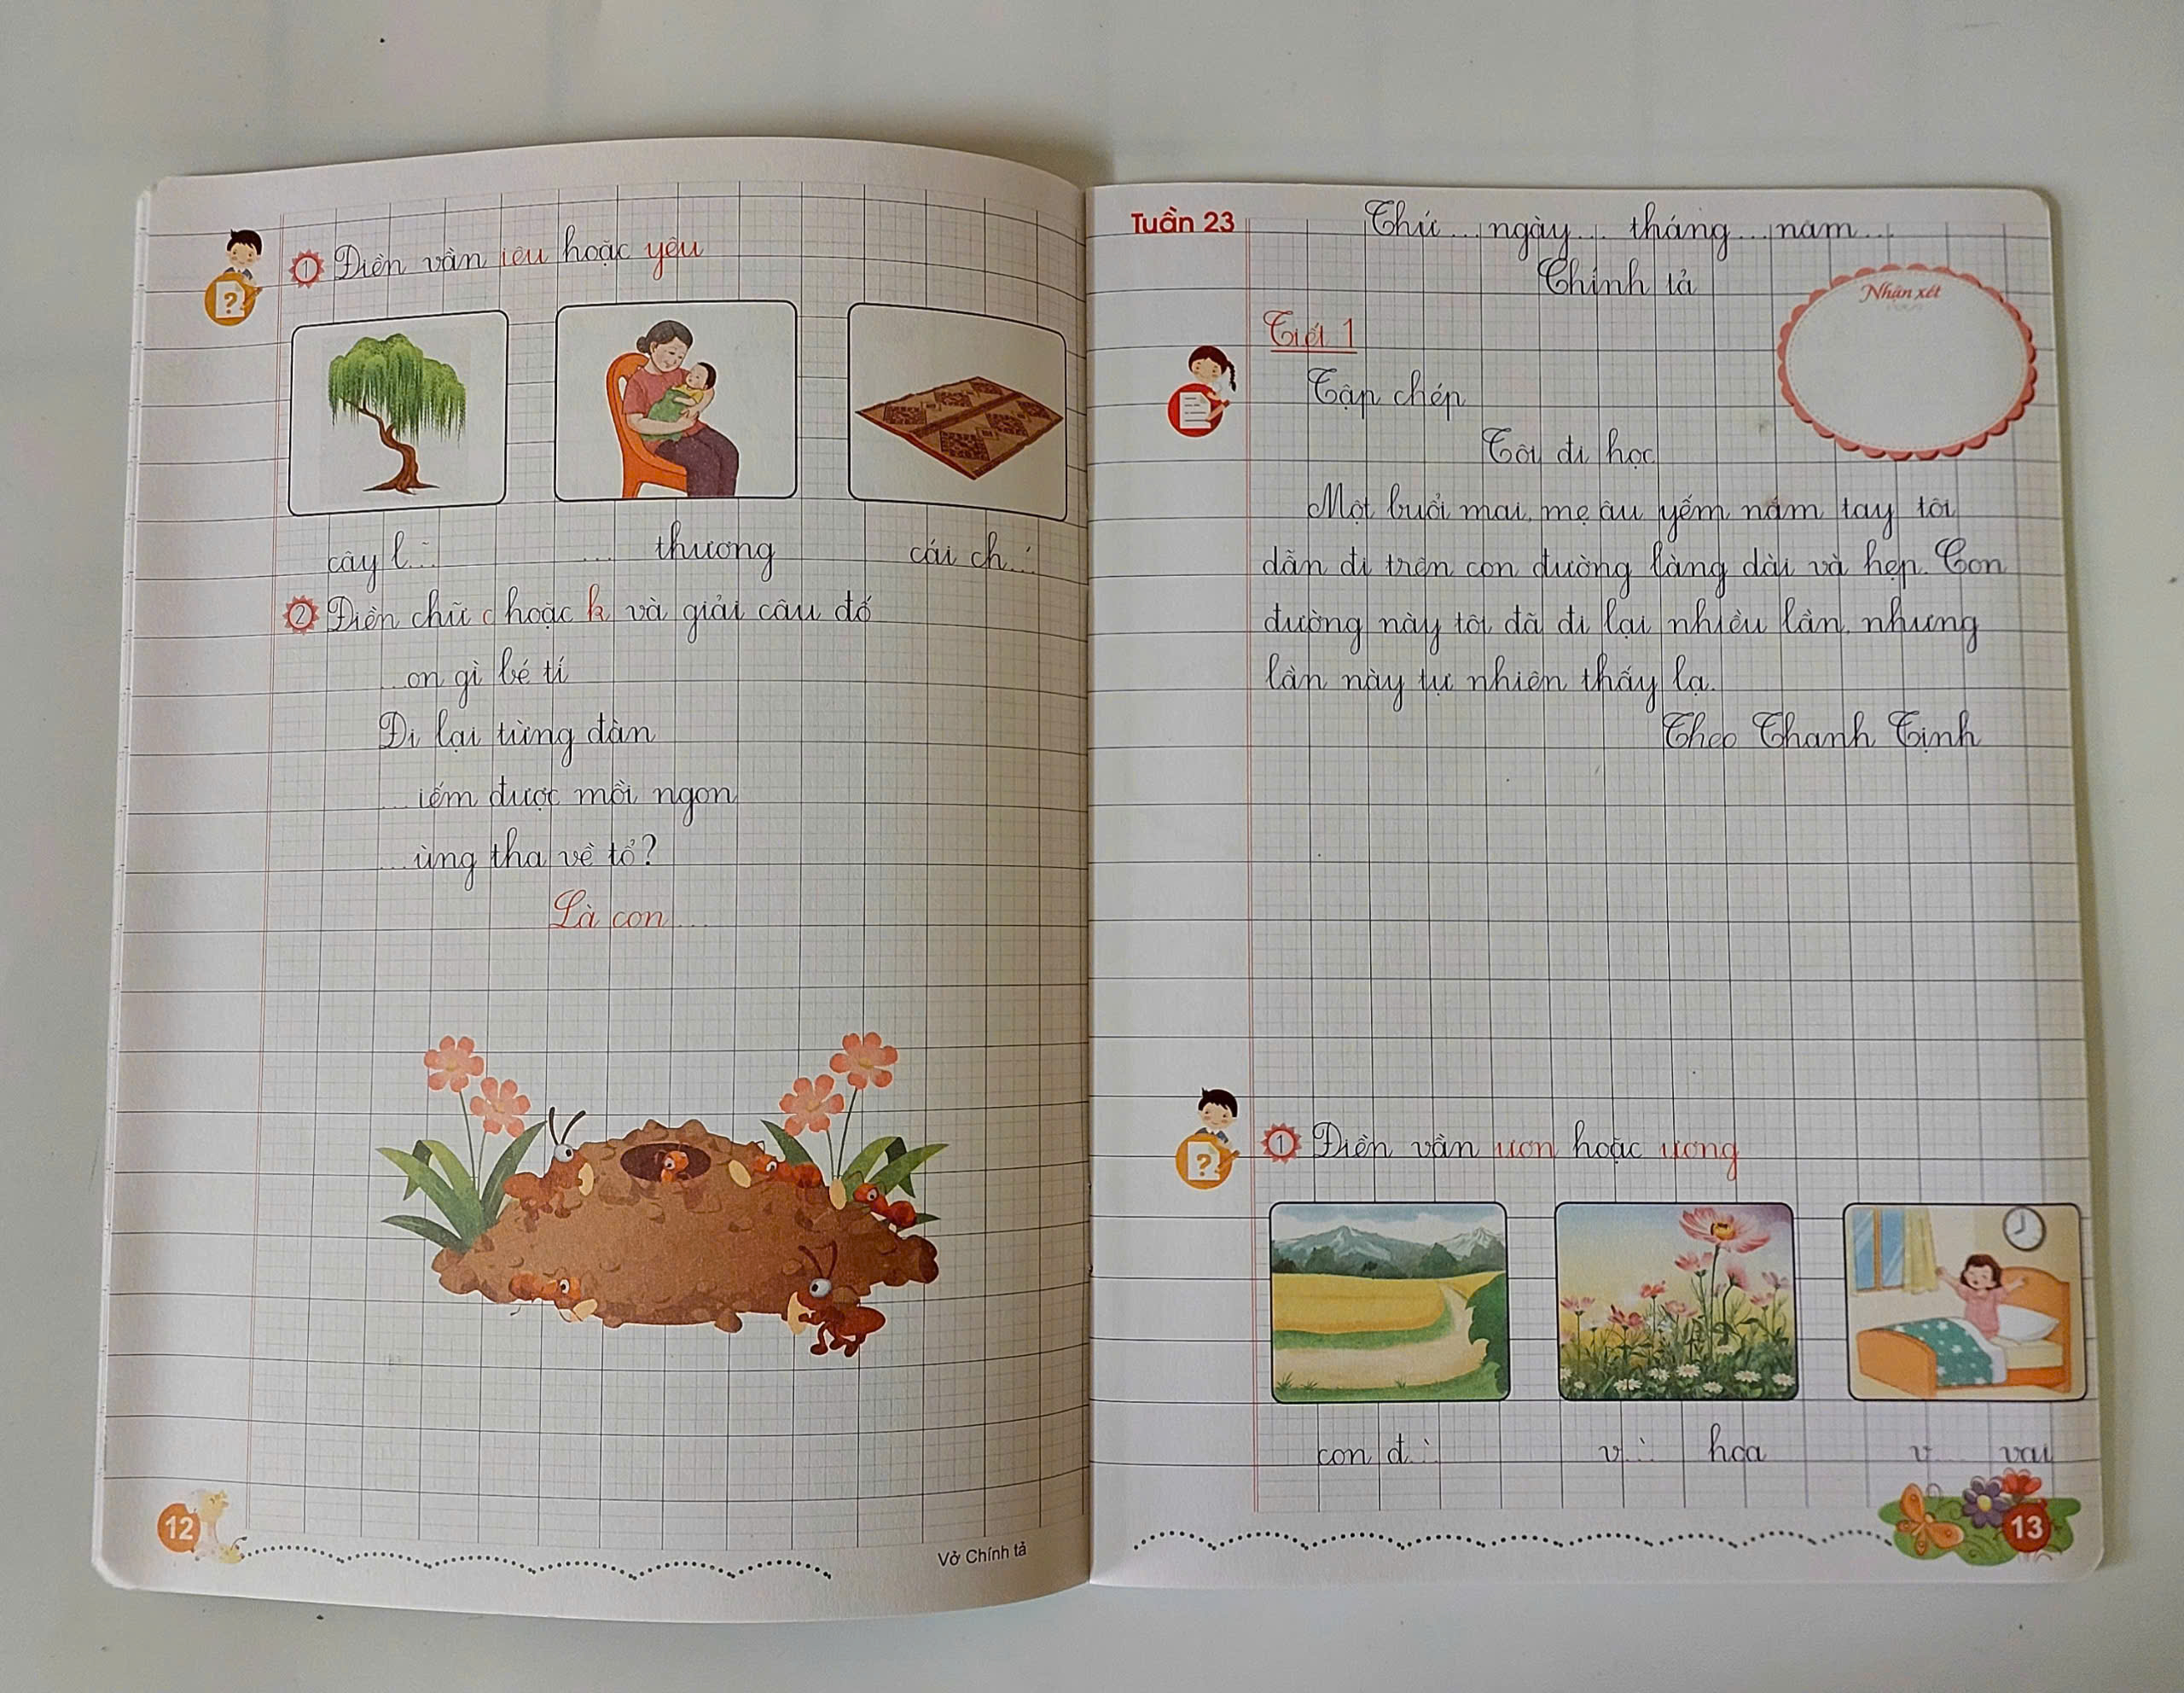 1 Điền vần iêu hoặc yêu
cây l...̃ ... thương cái ch...́
2 Điền chữ c hoặc k và giải câu đố
...on gì bé tí
Đi lại từng đàn
...iếm được mồi ngon
...ùng tha về tổ?
Là con...
12
Vở Chính tả
Tuần 23
Thứ... ngày... tháng... năm...
Chính tả
Nhận xét
Tiết 1
Tập chép
Tôi đi học
Một buổi mai, mẹ âu yếm nắm tay tôi
dẫn đi trên con đường làng dài và hẹp. Con
đường này tôi đã đi lại nhiều lần, nhưng
lần này tự nhiên thấy lạ.
Theo Thanh Tịnh
1 Điền vần ươn hoặc ương
con đ...̀ v...̀ hoa v... vai
13